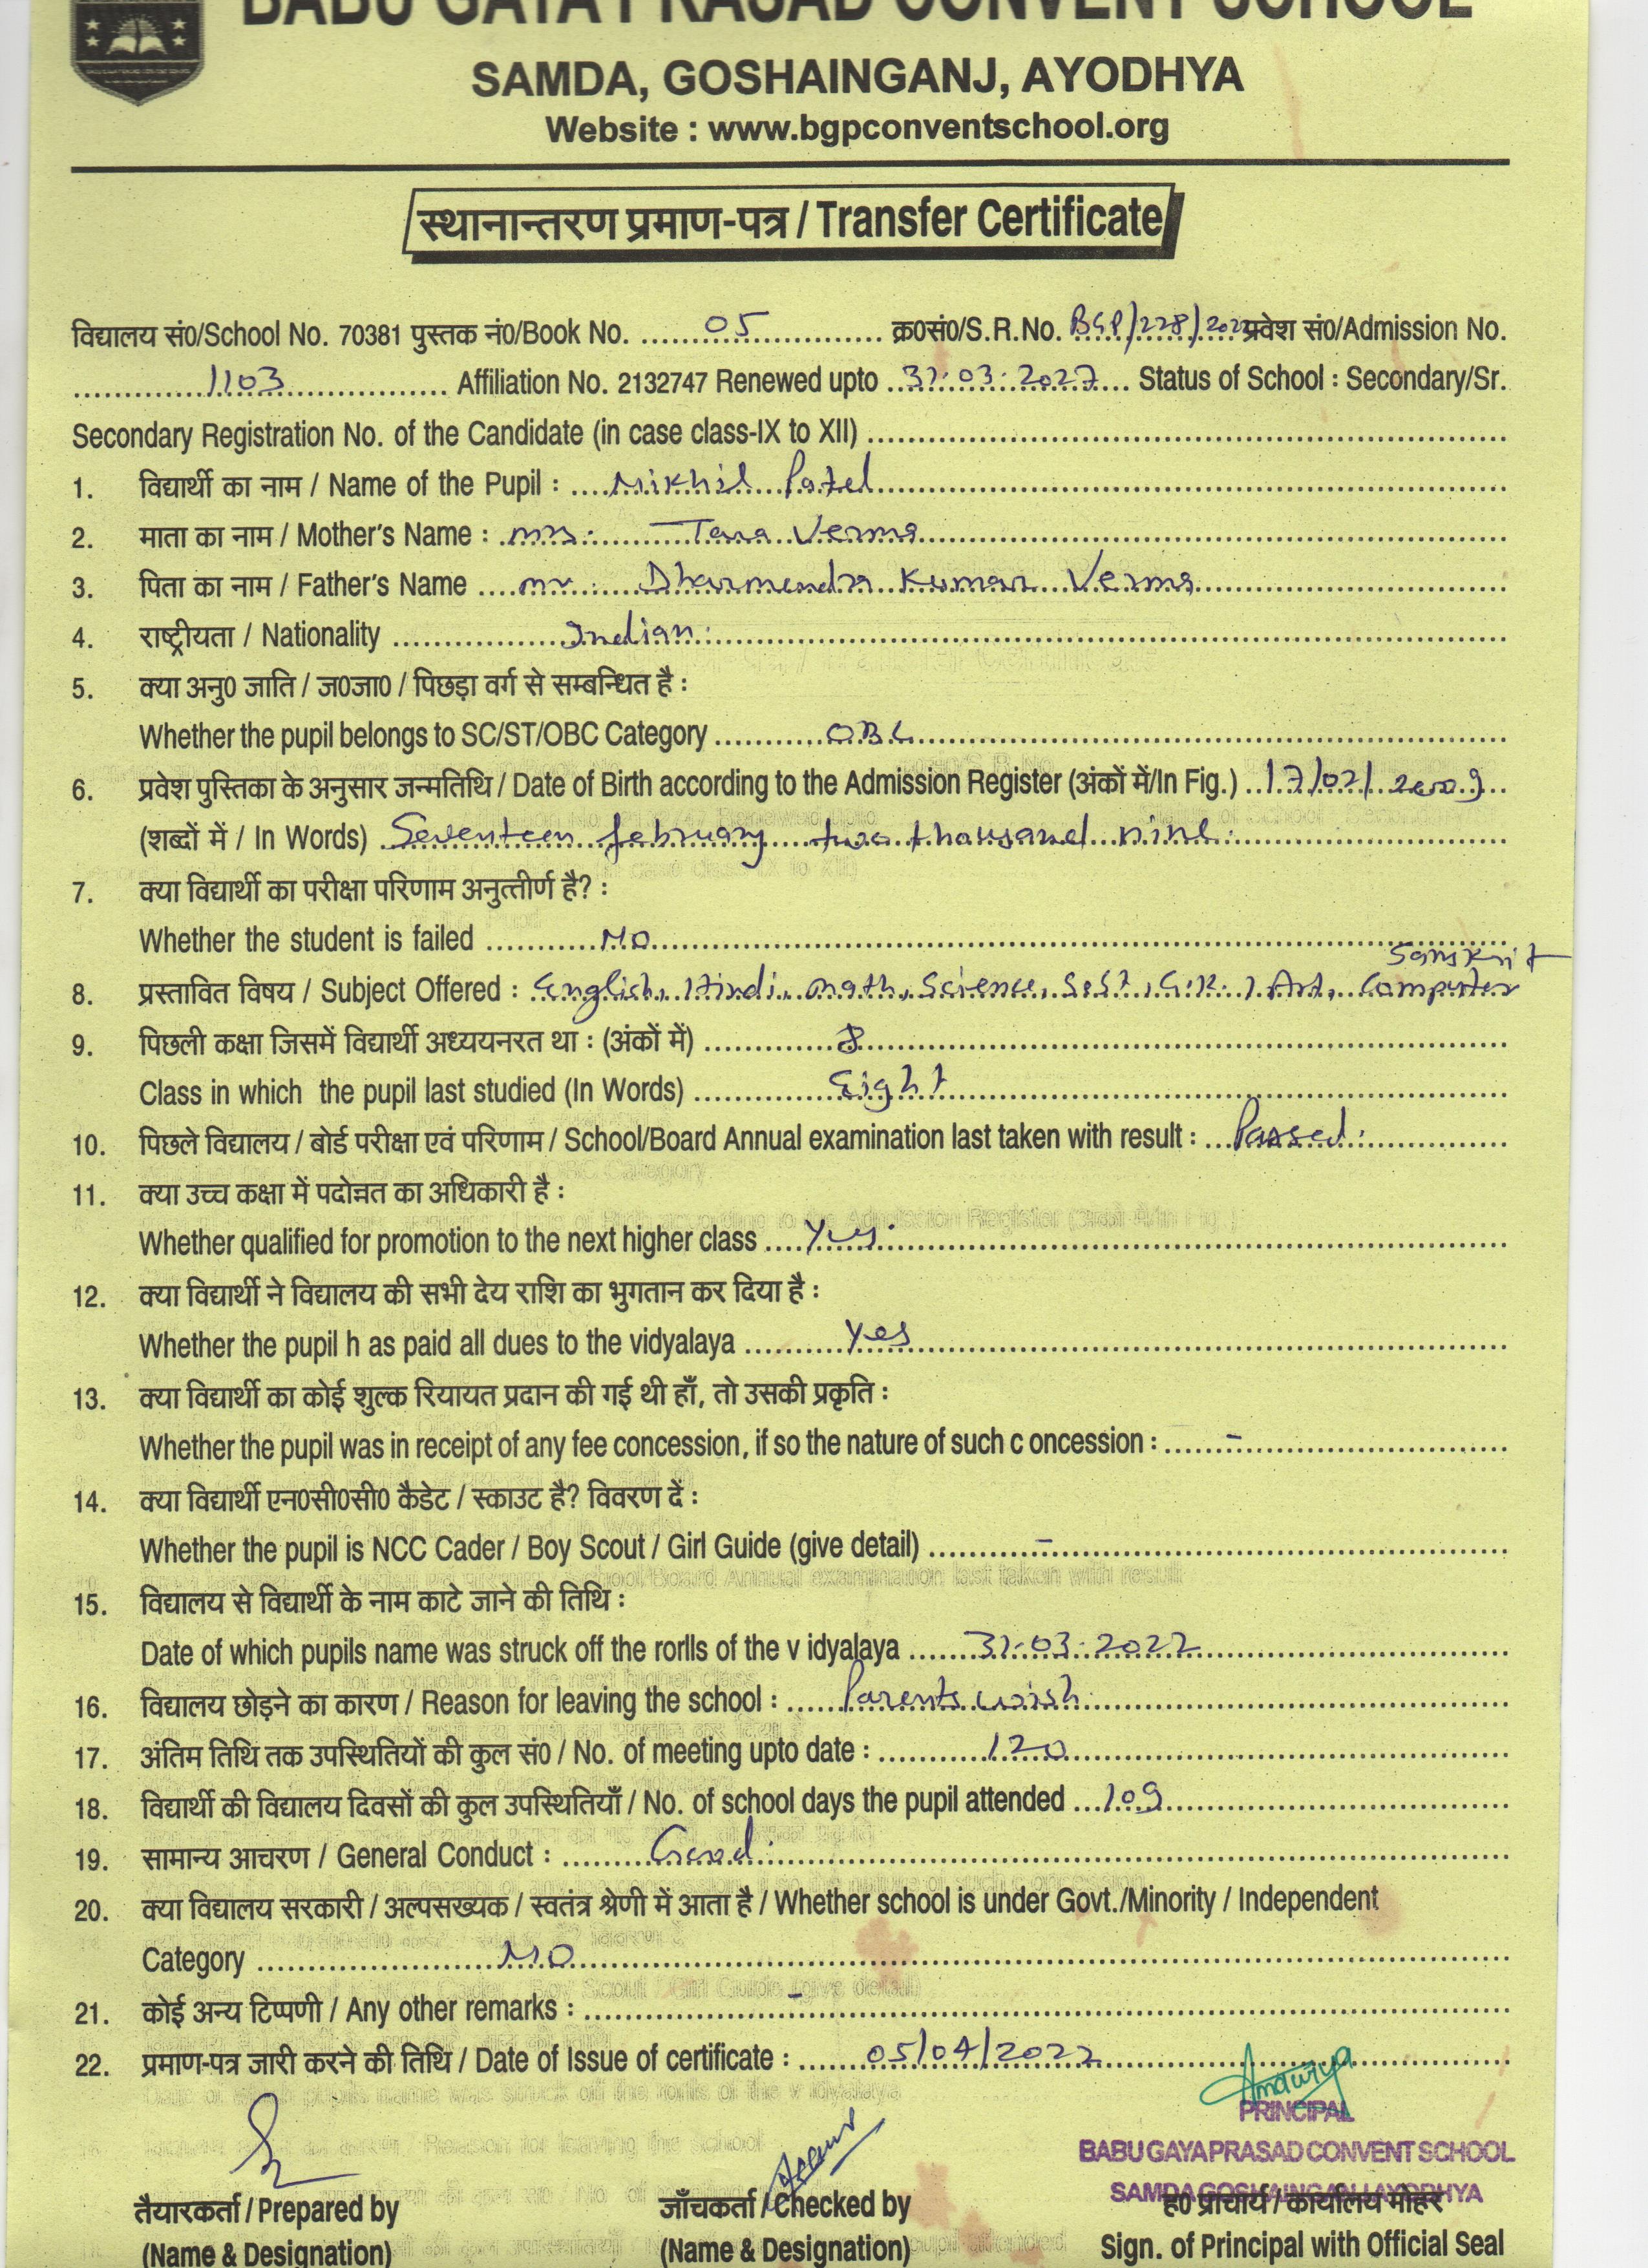 BABU GAYA PRASAD CONVENT SCHOOL
SAMDA, GOSHAINGANJ, AYODHYA
Website : www.bgpconventschool.org
स्थानान्तरण प्रमाण-पत्र / Transfer Certificate
विद्यालय सं0/School No. 70381 पुस्तक नं0/Book No. 05 क्र0सं0/S.R.No. BGP/228/2022 प्रवेश सं0/Admission No.
1103 Affiliation No. 2132747 Renewed upto 31.03.2027 Status of School : Secondary/Sr.
Secondary Registration No. of the Candidate (in case class-IX to XII)
1. विद्यार्थी का नाम / Name of the Pupil : Nikhil Patel
2. माता का नाम / Mother's Name : Mrs. Tara Verma
3. पिता का नाम / Father's Name Mr. Dharmendra Kumar Verma
4. राष्ट्रीयता / Nationality Indian.
5. क्या अनु0 जाति / ज0जा0 / पिछड़ा वर्ग से सम्बन्धित है :
Whether the pupil belongs to SC/ST/OBC Category OBC
6. प्रवेश पुस्तिका के अनुसार जन्मतिथि / Date of Birth according to the Admission Register (अंकों में/In Fig.) 17/02/2009
(शब्दों में / In Words) Seventeen february two thousand nine.
7. क्या विद्यार्थी का परीक्षा परिणाम अनुत्तीर्ण है? :
Whether the student is failed NO
Sanskrit
8. प्रस्तावित विषय / Subject Offered : English, Hindi, Math, Science, S.St, G.K., Art, Computer
9. पिछली कक्षा जिसमें विद्यार्थी अध्ययनरत था : (अंकों में) 8
Class in which the pupil last studied (In Words) Eight
10. पिछले विद्यालय / बोर्ड परीक्षा एवं परिणाम / School/Board Annual examination last taken with result : Passed.
11. क्या उच्च कक्षा में पदोन्नत का अधिकारी है :
Whether qualified for promotion to the next higher class Yes.
12. क्या विद्यार्थी ने विद्यालय की सभी देय राशि का भुगतान कर दिया है :
Whether the pupil h as paid all dues to the vidyalaya Yes
13. क्या विद्यार्थी का कोई शुल्क रियायत प्रदान की गई थी हाँ, तो उसकी प्रकृति :
Whether the pupil was in receipt of any fee concession, if so the nature of such c oncession : -
14. क्या विद्यार्थी एन0सी0सी0 कैडेट / स्काउट है? विवरण दें :
Whether the pupil is NCC Cader / Boy Scout / Girl Guide (give detail) -
15. विद्यालय से विद्यार्थी के नाम काटे जाने की तिथि :
Date of which pupils name was struck off the rorlls of the v idyalaya 31.03.2022
16. विद्यालय छोड़ने का कारण / Reason for leaving the school : Parents wish
17. अंतिम तिथि तक उपस्थितियों की कुल सं0 / No. of meeting upto date : 120
18. विद्यार्थी की विद्यालय दिवसों की कुल उपस्थितियाँ / No. of school days the pupil attended 109
19. सामान्य आचरण / General Conduct : Good.
20. क्या विद्यालय सरकारी / अल्पसख्यक / स्वतंत्र श्रेणी में आता है / Whether school is under Govt./Minority / Independent
Category NO
21. कोई अन्य टिप्पणी / Any other remarks : -
22. प्रमाण-पत्र जारी करने की तिथि / Date of Issue of certificate : 05/04/2022
PRINCIPAL
BABU GAYA PRASAD CONVENT SCHOOL
SAMDA GOSHAINGANJ AYODHYA
तैयारकर्ता / Prepared by जाँचकर्ता / Checked by ह0 प्राचार्य / कार्यालय मोहर
(Name & Designation) (Name & Designation) Sign. of Principal with Official Seal